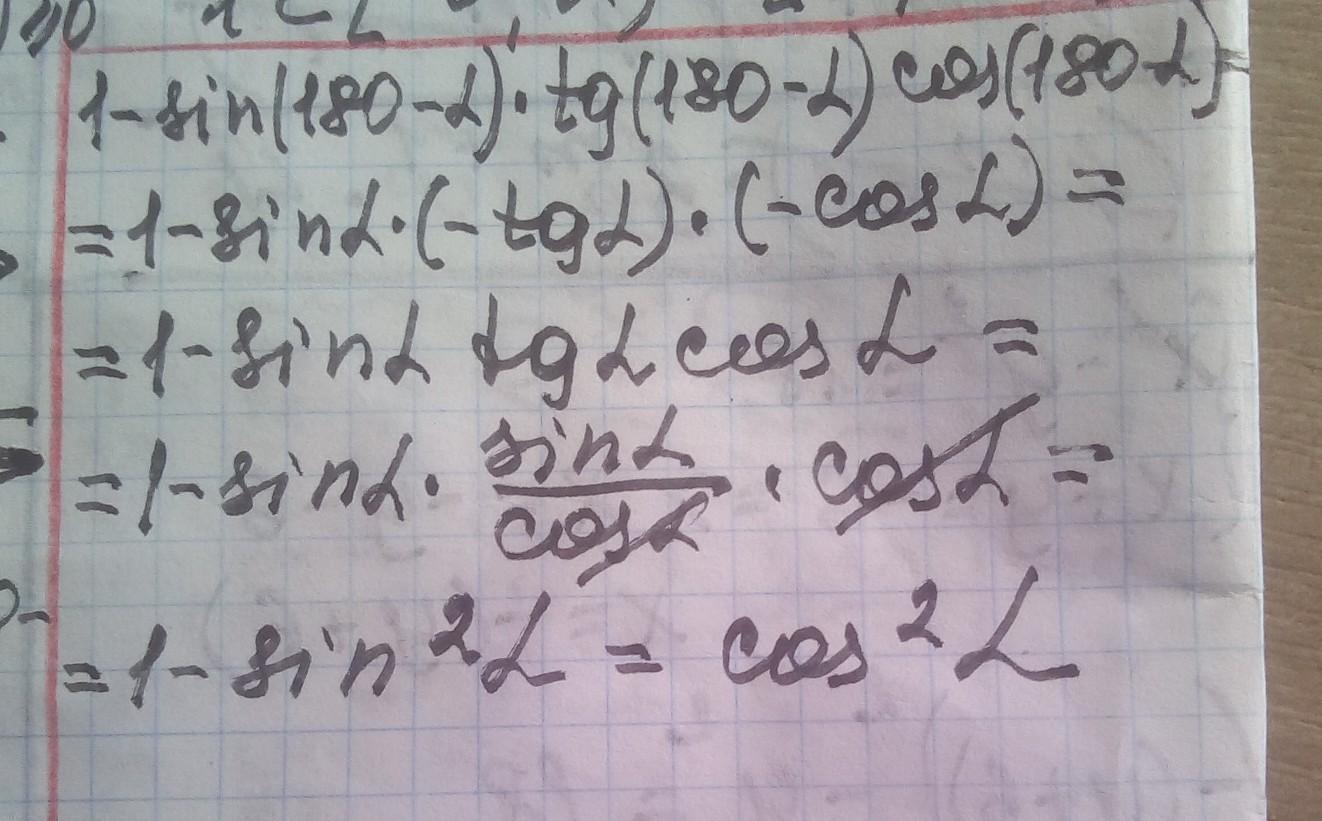 1-sin(180-α)·tg(180-α)cos(180-α)=
=1-sinα·(-tgα)·(-cosα)=
=1-sinα tgα cosα=
=1-sinα·sinα/cosα·cosα=
=1-sin²α=cos²α